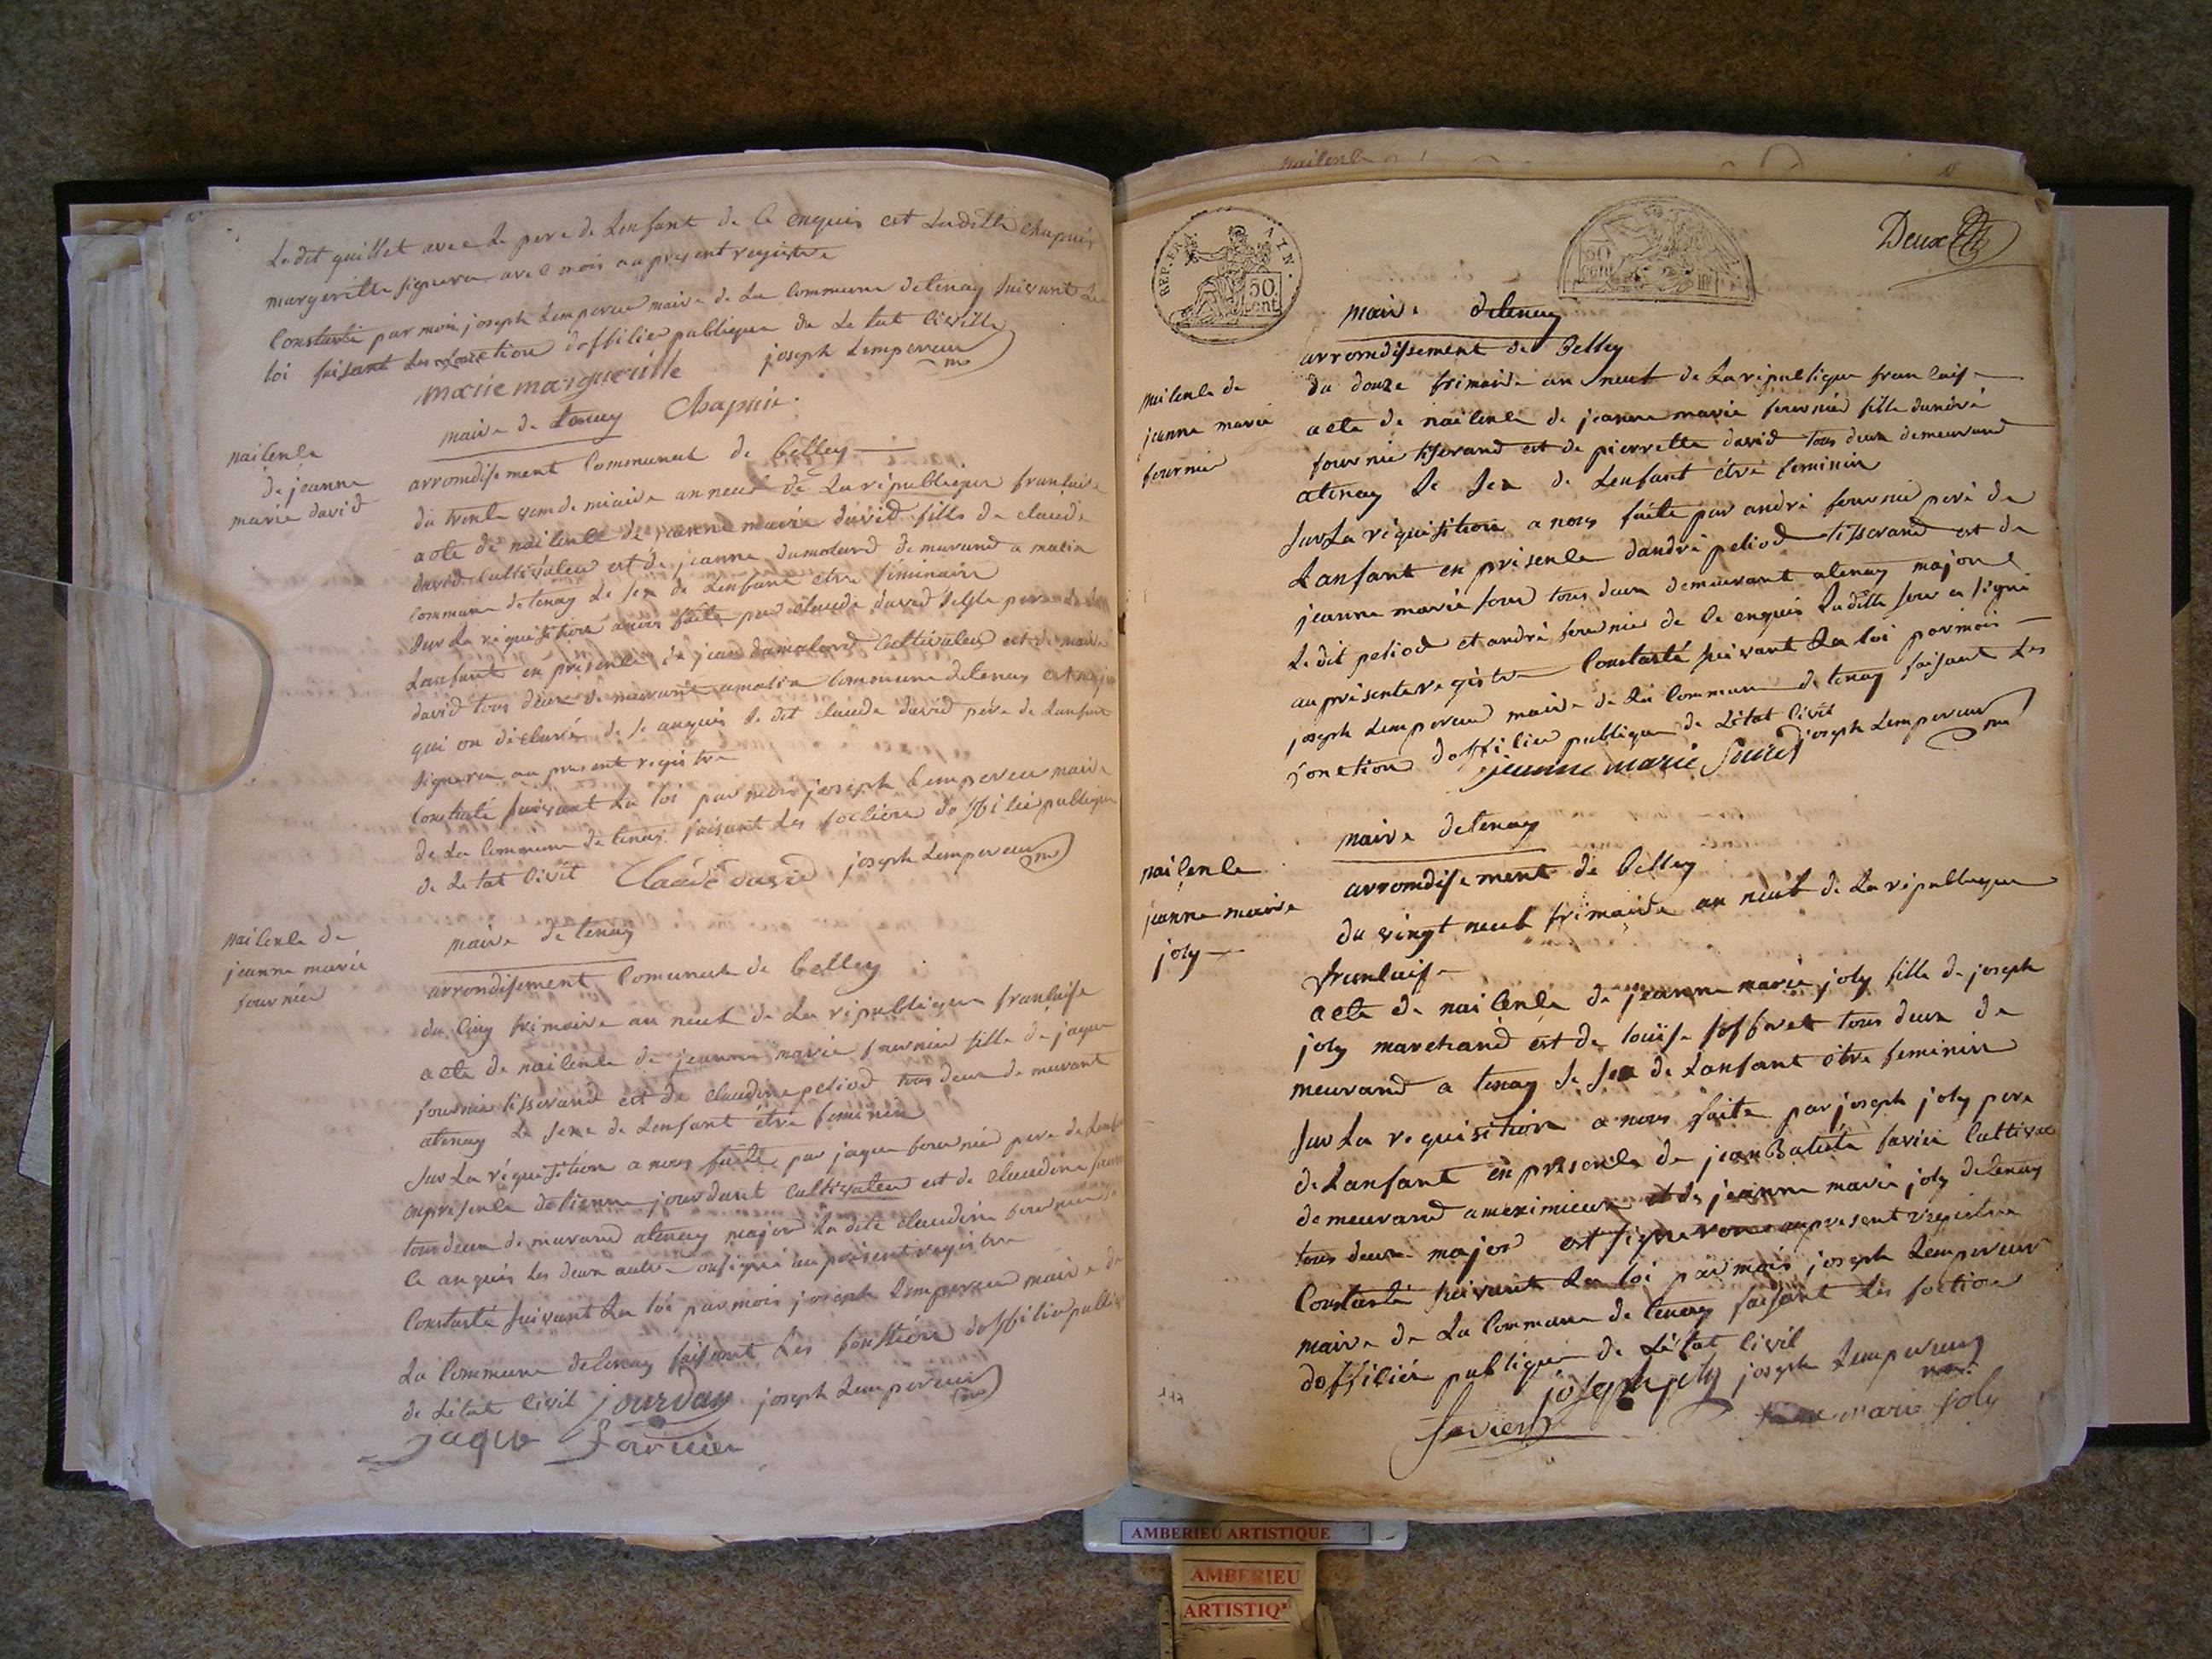 Le dit quillet avec le pere de Lenfant de ce enquis est Laditte chapuis
margeritte signeron avec mois au present registre
Constaté par moi joseph Lempereur maire de La Commune detenay suivant La
loi faisant Les fonction doffilier publique de Letat Civille
joseph Lempereur
marie margueritte
Chapuis
maire de tenay
nailenle
de jeanne
marie david
arromdisement Communal de belley
du trente vendemiaire an neuf de La république franlaise
acte de nailenle de jeanne marie david fille de claude
david Cultivateu est de jeanne dumolard demurand a malix
Commune detenay Le sex de Lenfant etre feminain
sur La requisition a nous faite par claude david
Lanfant en presenle de jean dumolard Cultivateu est de marie
david tous deux demeurant amalix Commune detenay
qui on déclaré de se anquis le dit claude david pere de Lanfant
signera au present registre
Constaté suivant La loi par mois joseph Lempereu maire
de La Commune de tenay faisant Les foctions doffilié publique
de Letat Civil
Claude david
joseph Lempereur
nailenle de
jeanne marie
fournié
maire de tenay
arrondisement Comunal de belley
du Cinq frimaire an neuf de La republique franlaise
acte de nailenle de jeanne marie fournié fille de jaque
fournie tisserand est de claudine peliod tous deux demeurant
atenay Le sexe de Lenfant étré feminin
sur La réquisition a nous faite par jaque fournié pere de Lenfant
enpresenle detienne jourdant Cultivateu est de claudine
tousdeux demurand atenay major La dite claudine fournié de
Ce anquis Les deux autre onsigné au présent registre
Constaté suivant La loi par mois joseph Lempereu maire de
La Commune detenay faisant Les fonstion doffilie publique
de Létat Civil
jourdan
joseph Lempereur
jaque fournier
REP. FRA
AIN.
50
cent
50
cent
Deux
maire detenay
arromdissement de Belley
nailenle de
jeanne marie
fournié
du douze frimaire an neuf de La république franlaise
acte de nailenle de jeanne marie fournié fille dandré
fournie tiserand est de pierrette david tous deux demeurand
atenay Le sex de Lenfant étre feminin
sur La réquisition a nous faite par andré fournié peré de
Lanfant en présenle dandré peliod tisserand est de
jeanne marie four tous deux demeurant atenay major
Le dit peliod et andré fournié de Ce enquis Laditte four a signé
au présente registre Constaté suivant La loi parmois
joseph Lempereur maire de La Commune de tenay faisant Les
fonction doffilier publique de Létat Civil
joseph Lempereur
jeanne marie
maire detenay
nailenle
jeanne marie
joly
arromdisement de belley
du vingt neuf frimaire an neuf de La république
franlaise
acte de nailenle de jeanne marie joly fille de joseph
joly marchand est de louise soffret tous deux de
meurand a tenay Le sex de Lanfant étre feminin
sur La requisition a nous faite par joseph joly pere
de Lanfant en presenle de jean Batiste savié Cultivateu
demeurand ameximieux et de jeanne marie joly detenay
tous deux major est signeron au present registre
Constaté suivant La loi par mois joseph Lempereur
maire de La Commune de tenay faisant Les foction
doffilier publique de Létat Civil
joseph joly
joseph Lempereur
savier
marie joly
117
AMBERIEU ARTISTIQUE
AMBERIEU
ARTISTIQ